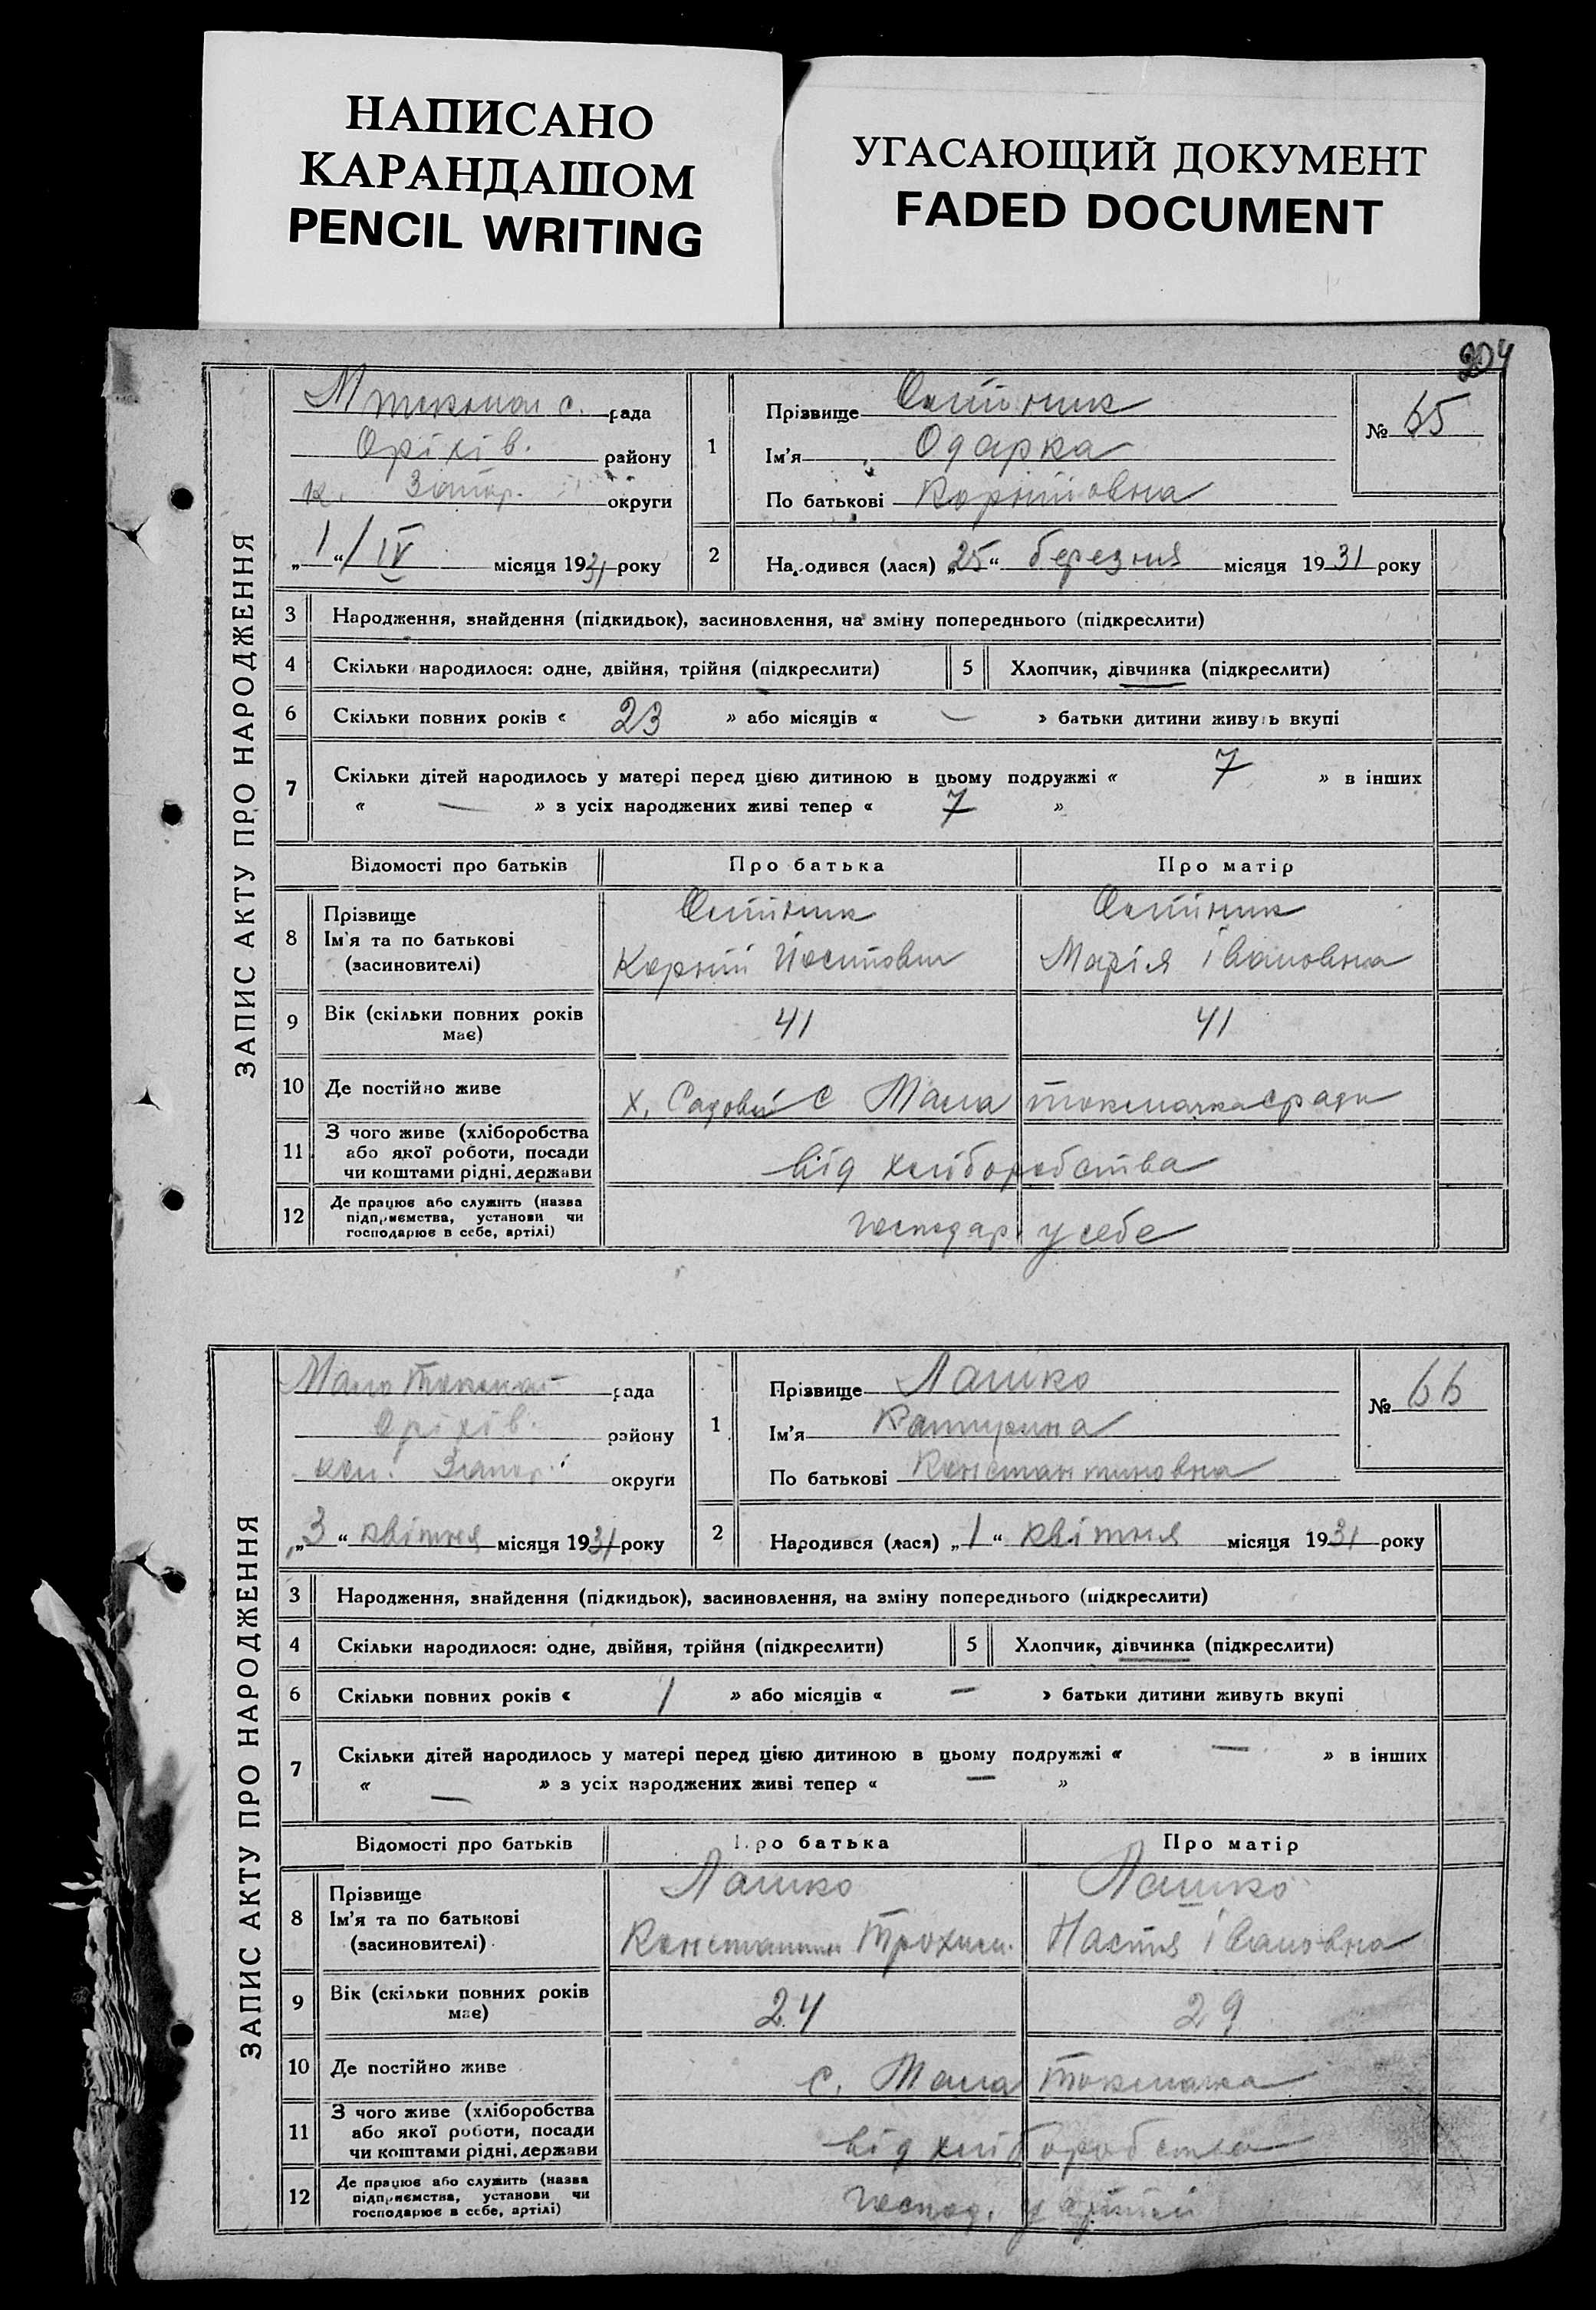 НАПИСАНО
КАРАНДАШОМ
PENCIL WRITING
УГАСАЮЩИЙ ДОКУМЕНТ
FADED DOCUMENT
204
ЗАПИС АКТУ ПРО НАРОДЖЕННЯ
с. рада
Оріхів. району
к. Запор. округи
„1“/IV місяця 1931 року
1
Прізвище
Ім'я Одарка
По батькові Корніївна
№ 65
2 Народився (лася) „25“ березня місяця 1931 року
3 Народження, знайдення (підкидьок), засиновлення, на зміну попереднього (підкреслити)
4 Скільки народилося: одне, двійня, трійня (підкреслити) 5 Хлопчик, дівчинка (підкреслити)
6 Скільки повних років « 23 » або місяців « — » батьки дитини живуть вкупі
7 Скільки дітей народилось у матері перед цією дитиною в цьому подружжі « 7 » в інших
« — » з усіх народжених живі тепер « 7 »
Відомості про батьків Про батька Про матір
8 Прізвище
Ім'я та по батькові Корній Йосипович Марія Івановна
(засиновителі)
9 Вік (скільки повних років має) 41 41
10 Де постійно живе х. Садовий с Мала токмачка сради
11 З чого живе (хліборобства або якої роботи, посади чи коштами рідні, держави від хліборобства
12 Де працює або служить (назва підприємства, установи чи господарює в себе, артілі) господар. у себе
ЗАПИС АКТУ ПРО НАРОДЖЕННЯ
Мало Токмач рада
Оріхів. району
Запор. округи
„3“ квітня місяця 1931 року
1
Прізвище Лашко
Ім'я Катирина
По батькові Константиновна
№ 66
2 Народився (лася) „1“ квітня місяця 1931 року
3 Народження, знайдення (підкидьок), засиновлення, на зміну попереднього (підкреслити)
4 Скільки народилося: одне, двійня, трійня (підкреслити) 5 Хлопчик, дівчинка (підкреслити)
6 Скільки повних років « 1 » або місяців « — » батьки дитини живуть вкупі
7 Скільки дітей народилось у матері перед цією дитиною в цьому подружжі « — » в інших
« — » з усіх народжених живі тепер « — »
Відомості про батьків Про батька Про матір
8 Прізвище Лашко Лашко
Ім'я та по батькові Константин Трохим. Настя Івановна
(засиновителі)
9 Вік (скільки повних років має) 24 29
10 Де постійно живе с. Мала Токмачка
11 З чого живе (хліборобства або якої роботи, посади чи коштами рідні, держави від хліборобства
12 Де працює або служить (назва підприємства, установи чи господарює в себе, артілі) господ. у артілі